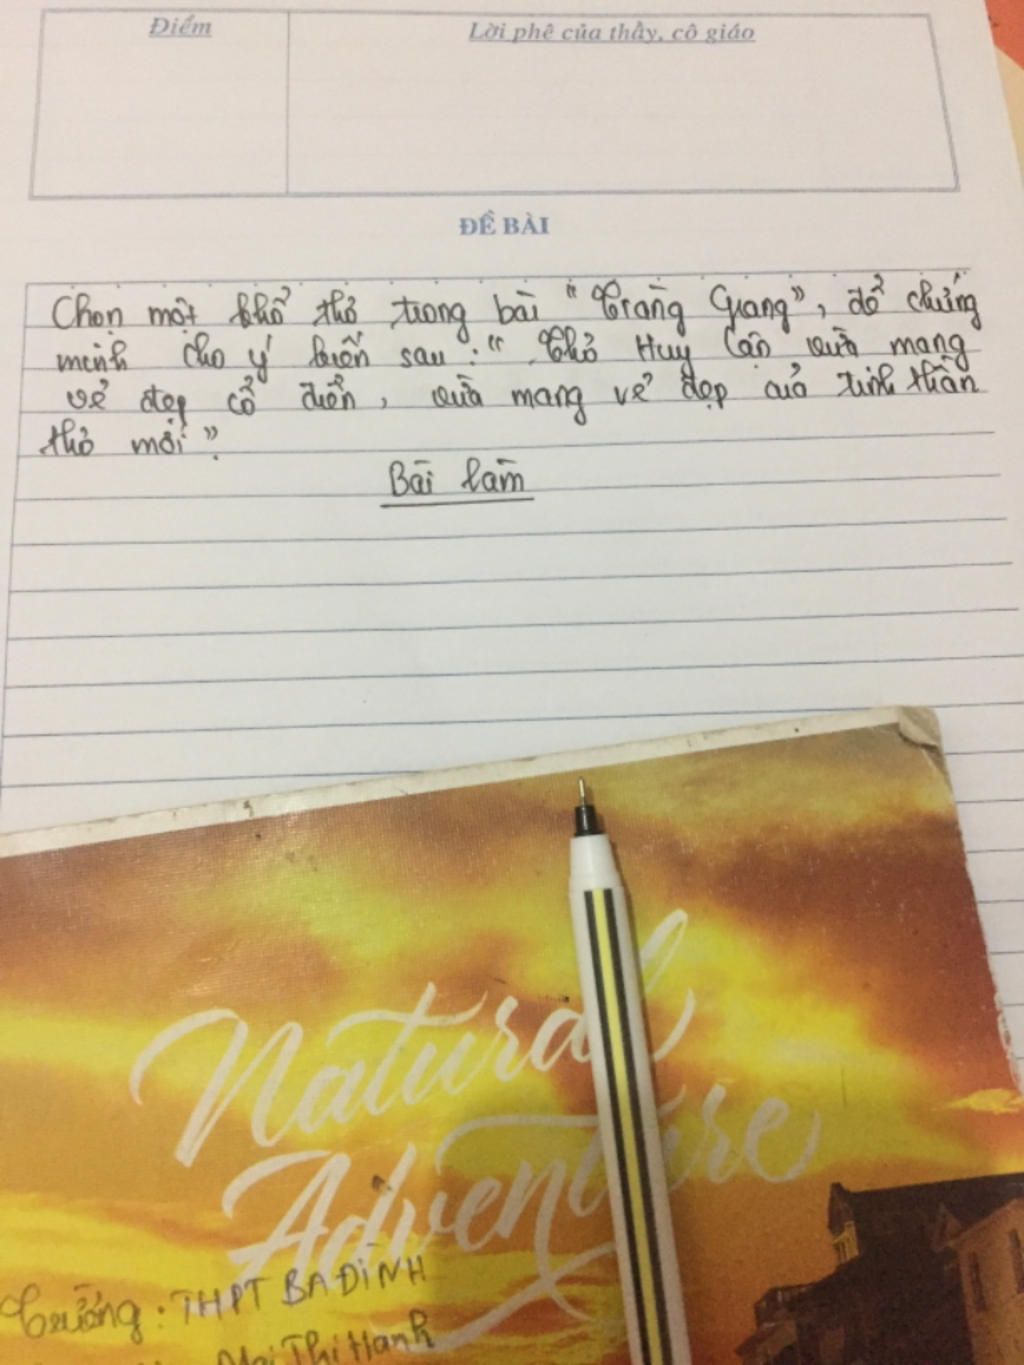 Điểm
Lời phê của thầy, cô giáo
ĐỀ BÀI
Chọn một khổ thơ trong bài "Tràng Giang", để chứng
minh cho ý kiến sau: "Thơ Huy Cận vừa mang
vẻ đẹp cổ điển, vừa mang vẻ đẹp của tinh thần
thơ mới".
Bài làm
Natural
Adventure
Trường: THPT BA ĐÌNH
Mai Thị Hạnh